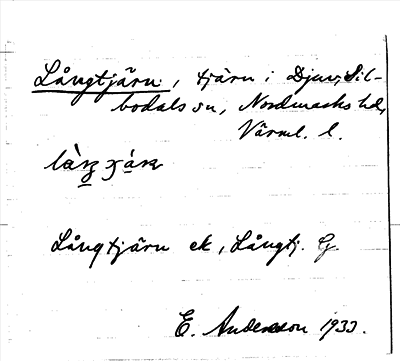 Långtjärn, tjärn i Djur, Sil-
bodals sn, Nordmarks hd,
Värml. l.
Långtjärn ek, Långtj. G.
E. Andersson 1933.